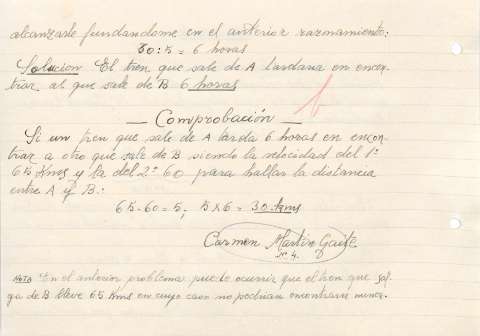 alcanzarle fundandome en el anterior razonamiento:
30:5 = 6 horas
Solucion El tren que sale de A tardaria en encon-
trar al que sale de B 6 horas
b
— Comprobación —
Si un tren que sale de A tarda 6 horas en encon-
trar a otro que sale de B siendo la velocidad del 1º
65 Kms y la del 2º 60 para hallar la distancia
entre A y B.:
65-60=5; 5x6=30 kms
Carmen Martin Gaite
Nº 4.
NOTA En el anterior problema puede ocurrir que el tren que sal-
ga de B lleve 65 kms en cuyo caso no podrian encontrarse nunca.